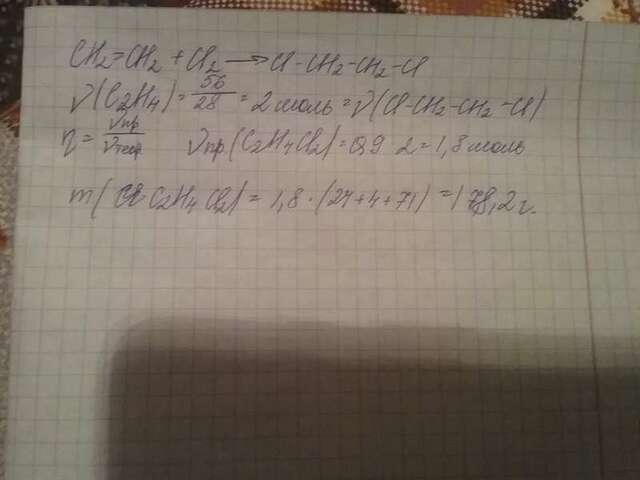 CH₂=CH₂ + Cl₂ → Cl-CH₂-CH₂-Cl
ν(C₂H₄) = 56/28 = 2 моль = ν(Cl-CH₂-CH₂-Cl)
η = νпр/νтеор νпр(C₂H₄Cl₂) = 0,9 · 2 = 1,8 моль
m(C₂H₄Cl₂) = 1,8 · (24+4+71) = 178,2 г.